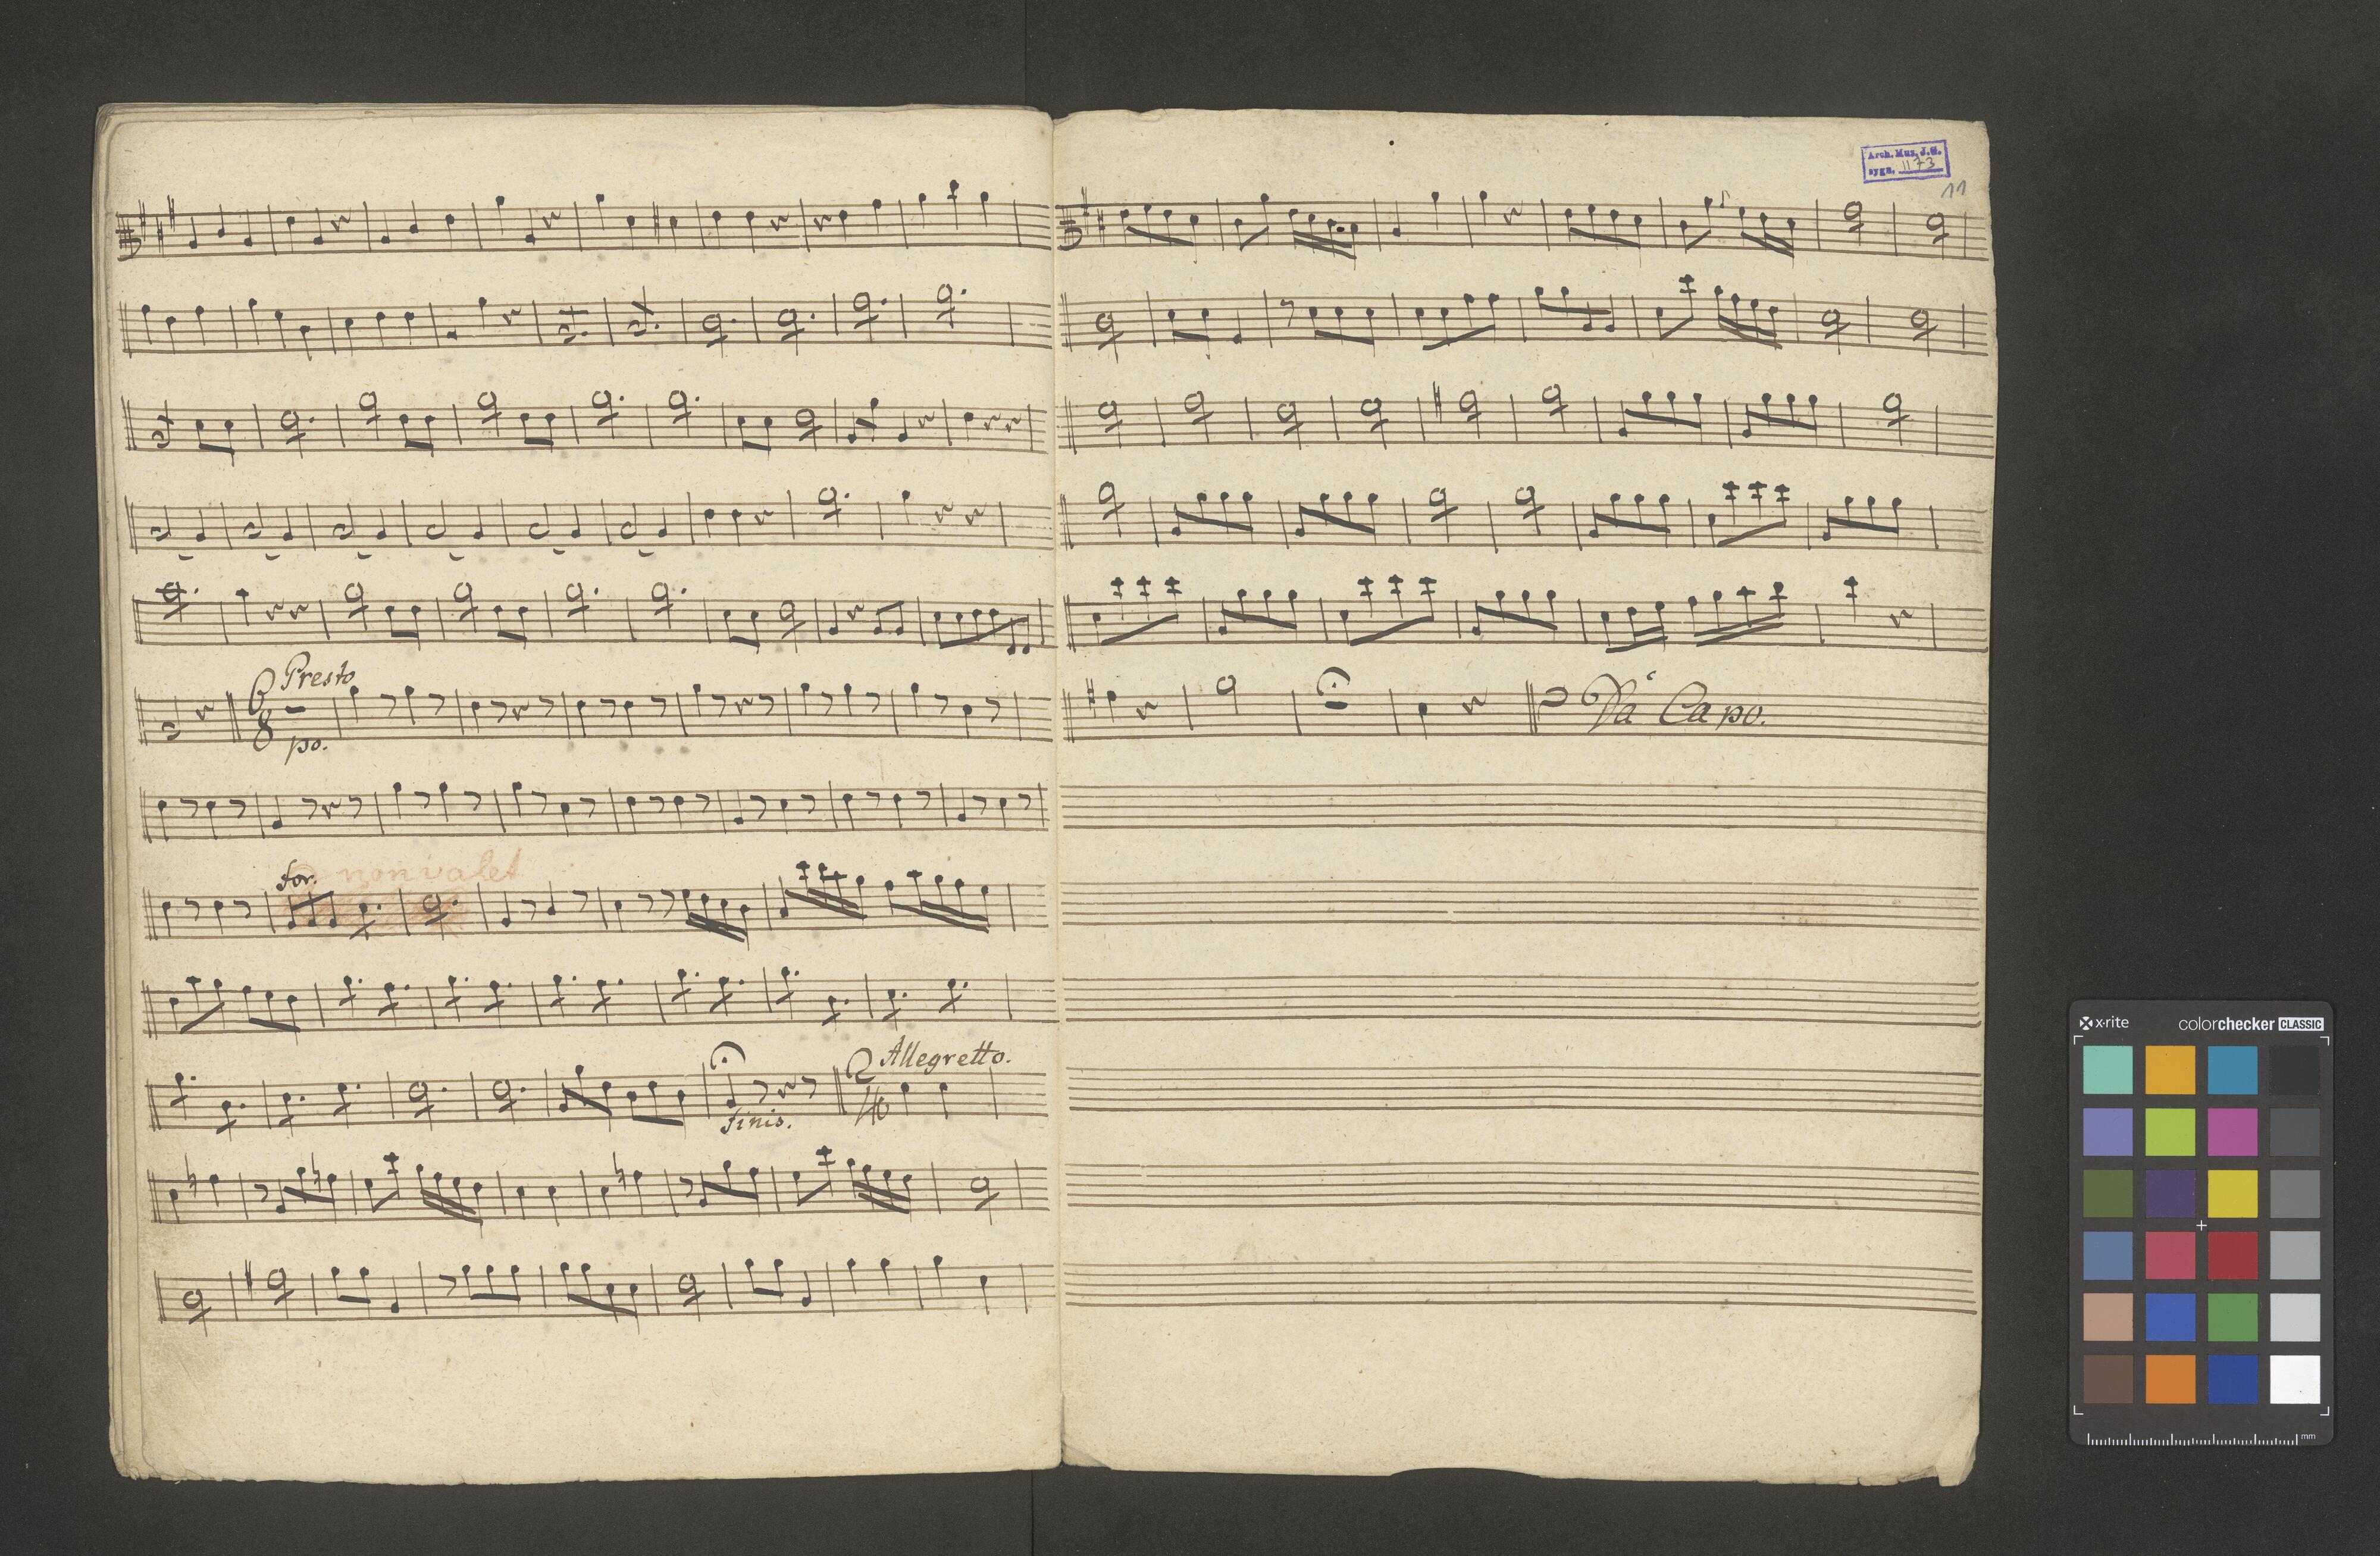 Presto
6
8
po.
for.
non valet
Allegretto.
2
4
finis.
Arch. Muz. J.G.
sygn. 1173
11
Da Capo.
x·rite
colorchecker CLASSIC
mm